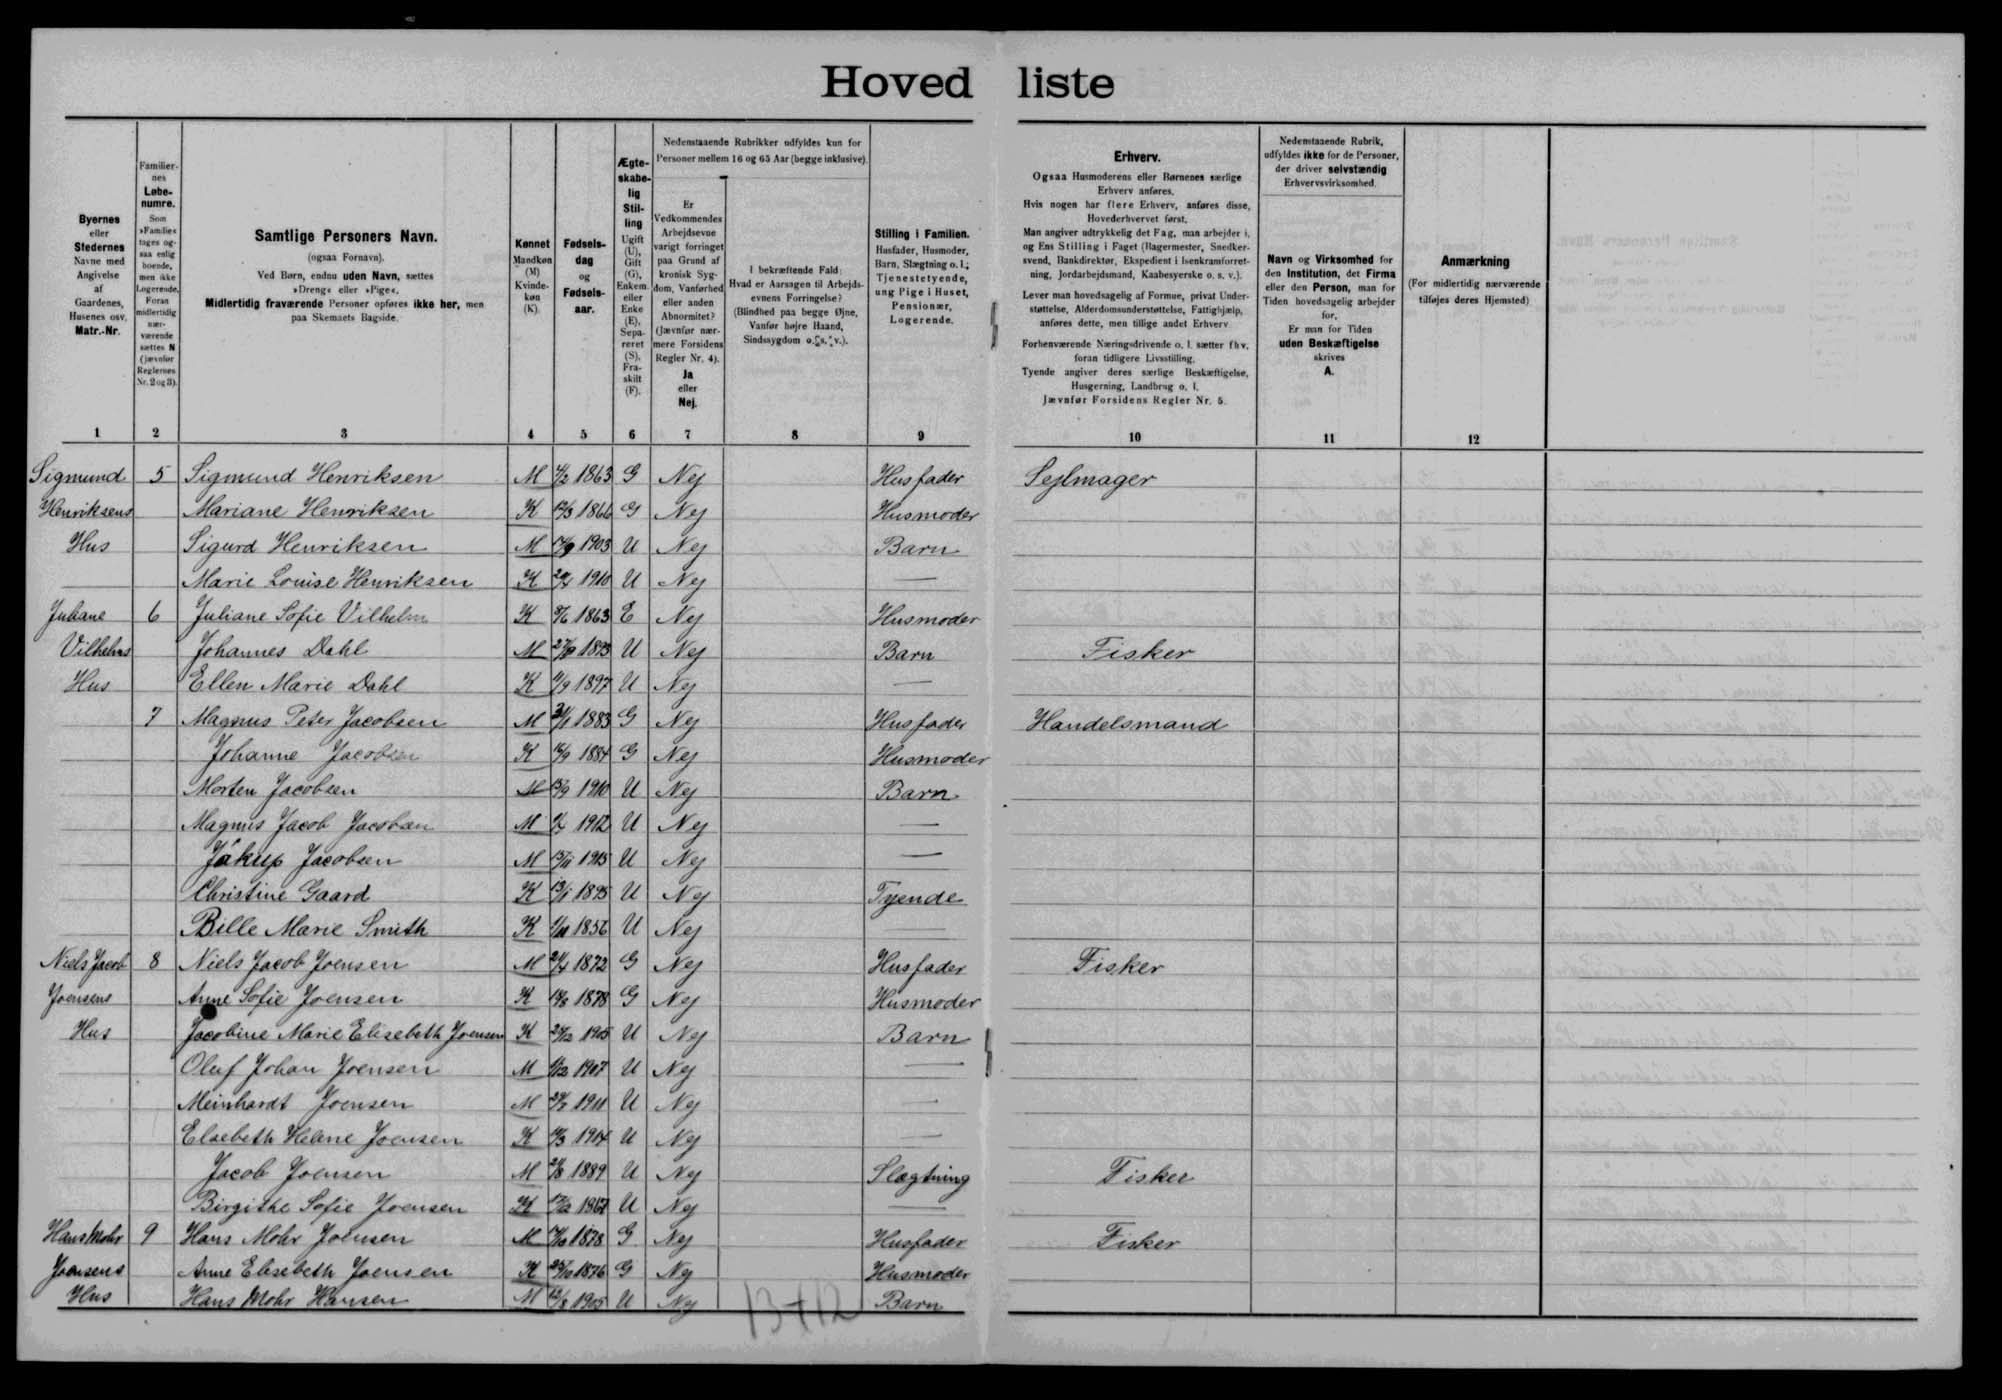 Hovedliste
Byernes eller Stedernes Navne med Angivelse af Gaardenes, Husenes osv. Matr.-Nr.
Familiernes Løbenumre. Som »Familie« tages ogsaa enlig boende, men ikke Logerende. Foran midlertidig nærværende sættes N (jævnfør Reglernes Nr. 2 og 3).
Samtlige Personers Navn.
(ogsaa Fornavn).
Ved Børn, endnu uden Navn, sættes
»Dreng« eller »Pige«.
Midlertidig fraværende Personer opføres ikke her, men
paa Skemaets Bagside.
Kønnet Mandkøn (M) Kvindekøn (K).
Fødselsdag og Fødselsaar.
Ægteskabelig Stilling Ugift (U), Gift (G), Enkem. eller Enke (E), Separeret (S), Fraskilt (F).
Nedenstaaende Rubrikker udfyldes kun for
Personer mellem 16 og 65 Aar (begge inklusive).
Er Vedkommendes Arbejdsevne varigt forringet paa Grund af kronisk Sygdom, Vanførhed eller anden Abnormitet? (Jævnfør nærmere Forsidens Regler Nr. 4). Ja eller Nej.
I bekræftende Fald: Hvad er Aarsagen til Arbejdsevnens Forringelse? (Blindhed paa begge Øjne, Vanfør højre Haand, Sindssygdom o. s. v.).
Stilling i Familien. Husfader, Husmoder, Barn, Slægtning o. l.; Tjenestetyende, ung Pige i Huset, Pensionær, Logerende.
Erhverv.
Ogsaa Husmoderens eller Børnenes særlige
Erhverv anføres.
Hvis nogen har flere Erhverv, anføres disse,
Hovederhvervet først.
Man angiver udtrykkelig det Fag, man arbejder i,
og Ens Stilling i Faget (Bagermester, Snedkersvend, Bankdirektør, Ekspedient i Isenkramforretning, Jordarbejdsmand, Kaabesyerske o. s. v.).
Lever man hovedsagelig af Formue, privat Understøttelse, Alderdomsunderstøttelse, Fattighjælp,
anføres dette, men tillige andet Erhverv
Forhenværende Næringsdrivende o. l. sætter fhv.
foran tidligere Livsstilling.
Tyende angiver deres særlige Beskæftigelse,
Husgerning, Landbrug o. l.
Jævnfør Forsidens Regler Nr. 5.
Nedenstaaende Rubrik,
udfyldes ikke for de Personer,
der driver selvstændig
Erhvervsvirksomhed.
Navn og Virksomhed for den Institution, det Firma eller den Person, man for Tiden hovedsagelig arbejder for. Er man for Tiden uden Beskæftigelse skrives A.
Anmærkning
(For midlertidig nærværende
tilføjes deres Hjemsted)
1 2 3 4 5 6 7 8 9 10 11 12
Sigmund 5 Sigmund Henriksen M 1863 G Nej Husfader Sejlmager
Henriksens Mariane Henriksen K 12/3 1866 G Nej Husmoder
Hus Sigurd Henriksen M 1903 U Nej Barn
Marie Louise Henriksen K 1910 U Nej —
Juliane 6 Juliane Sofie Vilhelm K 1863 E Nej Husmoder
Vilhelms Johannes Dahl M 1893 U Nej Barn Fisker
Hus Ellen Marie Dahl K 1897 U Nej —
7 Magnus Peter Jacobsen M 1883 G Nej Husfader Handelsmand
Johanne Jacobsen K 1884 G Nej Husmoder
Morten Jacobsen M 1910 U Nej Barn
Magnus Jacob Jacobsen M 1912 U Nej —
Jákup Jacobsen M 1915 U Nej —
Christine Gaard K 13/1 1895 U Nej Tyende
Bille Marie Smith K 1856 U Nej —
Niels Jacob 8 Niels Jacob Joensen M 1872 G Nej Husfader Fisker
Joensens Anne Sofie Joensen K 1878 G Nej Husmoder
Hus Jacobine Marie Elisebeth Joensen K 1905 U Nej Barn
Oluf Johan Joensen M 1907 U Nej —
Meinhardt Joensen M 1911 U Nej —
Elsebeth Helene Joensen K 1914 U Nej —
Jacob Joensen M 1889 U Nej Slægtning Fisker
Birgithe Sofie Joensen K U Nej —
Hans Mohr 9 Hans Mohr Joensen M 1878 G Nej Husfader Fisker
Joensens Anne Elisebeth Joensen K 1876 G Nej Husmoder
Hus Hans Mohr Hansen M 12/8 1905 U Nej Barn
13+12